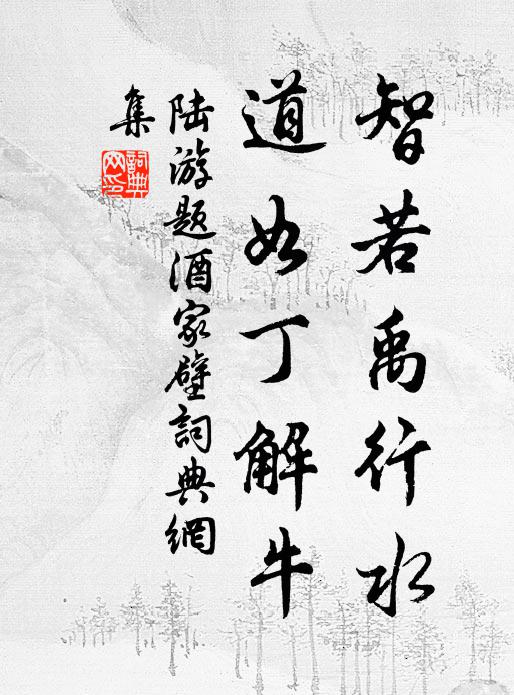 智若禹行水
道如丁解牛
陆游题酒家壁词典網
集
詞典
网印